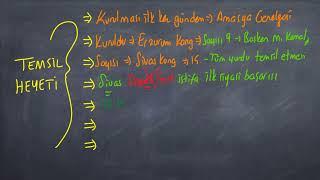 TEMSİL HEYETİ
⇒ Kurulması ilk kez gündem ⇒ Amasya Genelgesi
⇒ Kuruldu → Erzurum Kong → Sayısı 9 → Başkan M. Kemal
⇒ Sayısı → Sivas kong → 15 - Tüm yurdu temsil etmen
⇒ Sivas istifa ilk siyasi başarısı
⇒
⇒
⇒